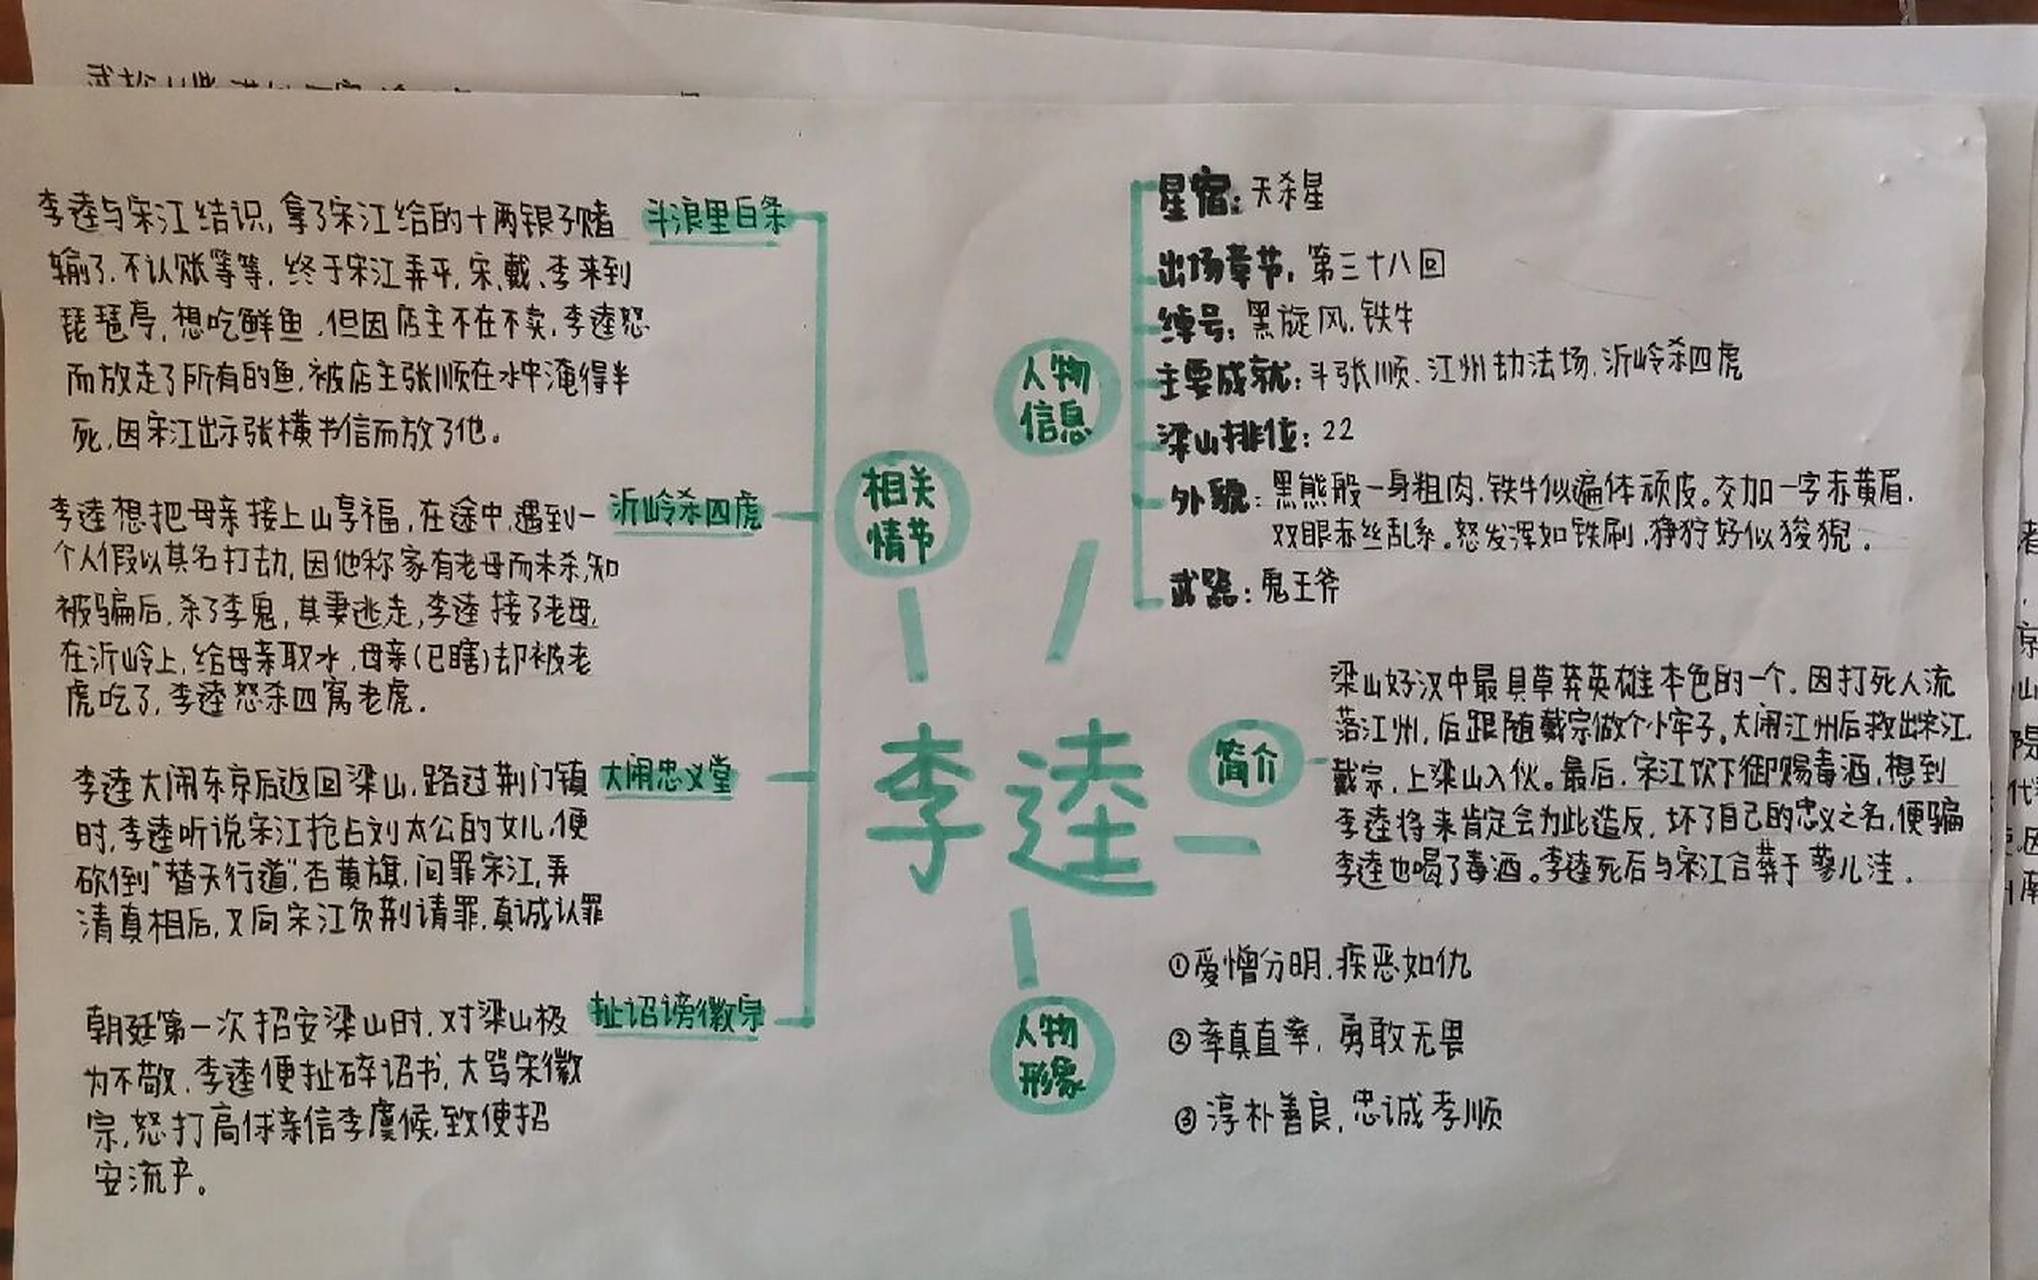 李逵
人物
信息
星宿：天杀星
出场章节：第三十八回
绰号：黑旋风、铁牛
主要成就：斗张顺、江州劫法场、沂岭杀四虎
梁山排位：22
外貌：黑熊般一身粗肉，铁牛似遍体顽皮。交加一字赤黄眉，
双眼赤丝乱系。怒发浑如铁刷，狰狞好似狻猊。
武器：鬼王斧
简介
梁山好汉中最具草莽英雄本色的一个。因打死人流
落江州，后跟随戴宗做个小牢子。大闹江州后救出宋江、
戴宗，上梁山入伙。最后，宋江饮下御赐毒酒，想到
李逵将来肯定会为此造反，坏了自己的忠义之名，便骗
李逵也喝了毒酒。李逵死后与宋江合葬于蓼儿洼。
人物
形象
①爱憎分明，疾恶如仇
②率真直率，勇敢无畏
③淳朴善良，忠诚孝顺
相关
情节
斗浪里白条
李逵与宋江结识，拿了宋江给的十两银子赌
输了，不认账等等，终于宋江弄平，宋、戴、李来到
琵琶亭，想吃鲜鱼，但因店主不在不卖，李逵怒
而放走了所有的鱼，被店主张顺在水中淹得半
死，因宋江出示张横书信而放了他。
沂岭杀四虎
李逵想把母亲接上山享福，在途中，遇到一
个人假以其名打劫，因他称家有老母而未杀，知
被骗后，杀了李鬼，其妻逃走，李逵接了老母，
在沂岭上，给母亲取水，母亲(已瞎)却被老
虎吃了，李逵怒杀四窝老虎.
大闹忠义堂
李逵大闹东京后返回梁山，路过荆门镇
时，李逵听说宋江抢占刘太公的女儿，便
砍倒“替天行道”杏黄旗，问罪宋江，弄
清真相后，又向宋江负荆请罪，真诚认罪
扯诏谤徽宗
朝廷第一次招安梁山时，对梁山极
为不敬，李逵便扯碎诏书，大骂宋徽
宗，怒打高俅亲信李虞候，致使招
安流产。